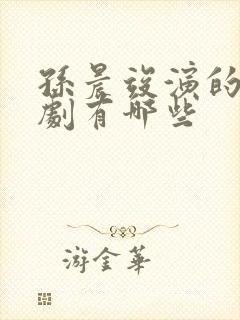 孫晨竣演的
劇有哪些
游金華